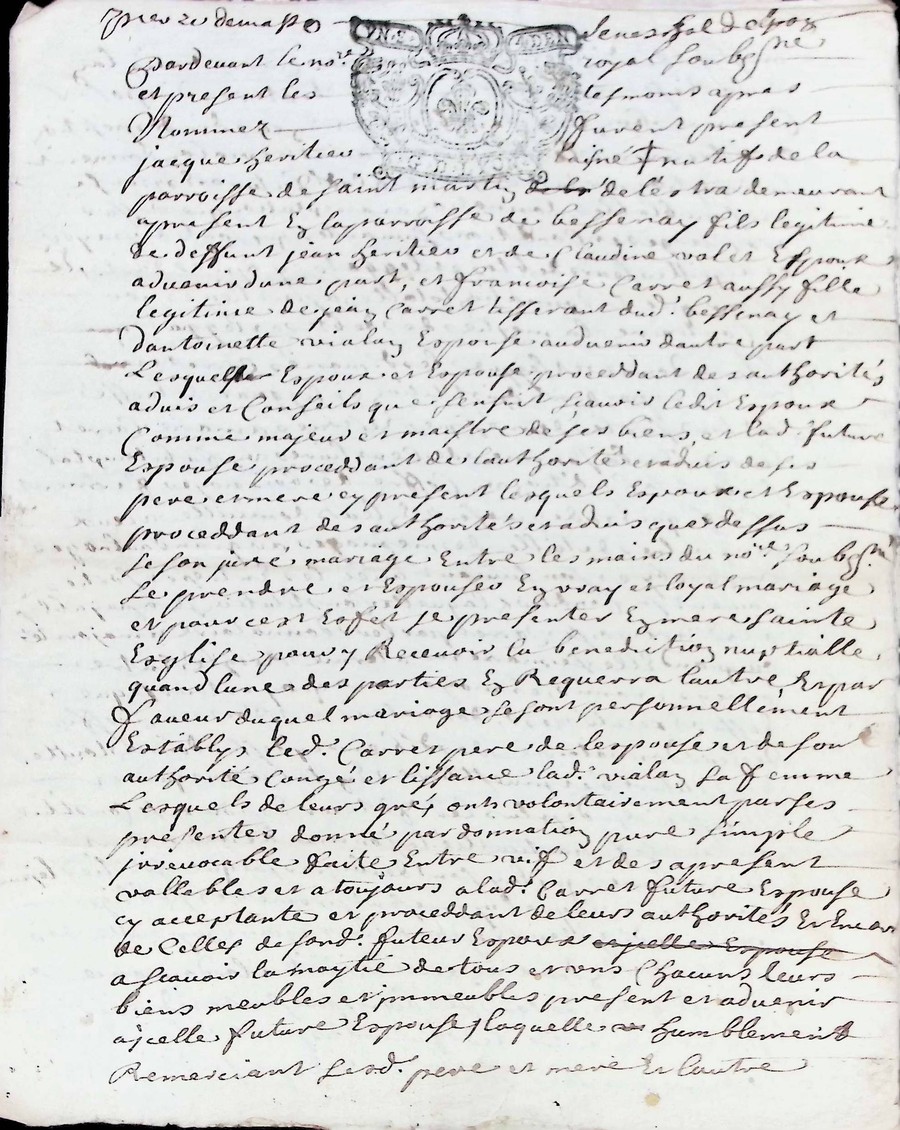 Pardevant le no.re royal soubsne
et present les tesmoins apres
Nommez furent present
jacque heritier aisné + natif de la
parroisse de saint martin de lestra demeurant
apresent En la parroisse de bessenay fils legitime
de deffunt jean heritier et de Claudine valet Espoux
advenir dune part, et francoise Carret aussy fille
legitime de jean Carret tisserant dud. bessenay et
dantoinette vialan Espouse advenir dautre part
Lesquels Espoux et Espouse proceddant des authorités
advis et Conseils que sensuit scavoir ledit Espoux
Comme majeur et maistre de ses biens, et lad. future
Espouse proceddant de lauthorité et advis de ses
pere et mere cy present lesquels Espoux et Espouse
proceddant des authorités et advis que dessus
se son juré mariage Entre les mains du no.re soubsne
se prendre et Espouser En vray et loyal mariage
et pour cest Effet se presenter En mere sainte
Esglise pour y Recevoir la benediction nuptialle,
quand lune des parties En Requerra lautre, Et par
faveur duquel mariage se sont personnellement
Establys led. Carret pere de lespouse et de son
authorité Congé et lissance lad. vialan sa femme
Lesquels de leurs gré, onts volontairement par ses
presentes donné par donnation pure simple
jrrevocable faite Entre vif et des apresent
vallables et a toujours a lad. Carret future Espouse
cy acceptante et proceddant de leurs authorités Et Encor
de Celles de sond. futeur Espoux et jcelle Espouse
a scavoir la moytié de tous et uns Chacuns leurs
biens meubles et jmmeubles present et advenir
a jcelle future Espouse, laquelle humblement
Remerciant sesd. pere et mere Et lautre